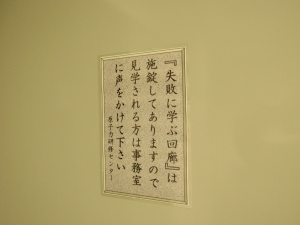 『失敗に学ぶ回廊』は
施錠してありますので
見学される方は事務室
に声をかけて下さい
原子力研修センター